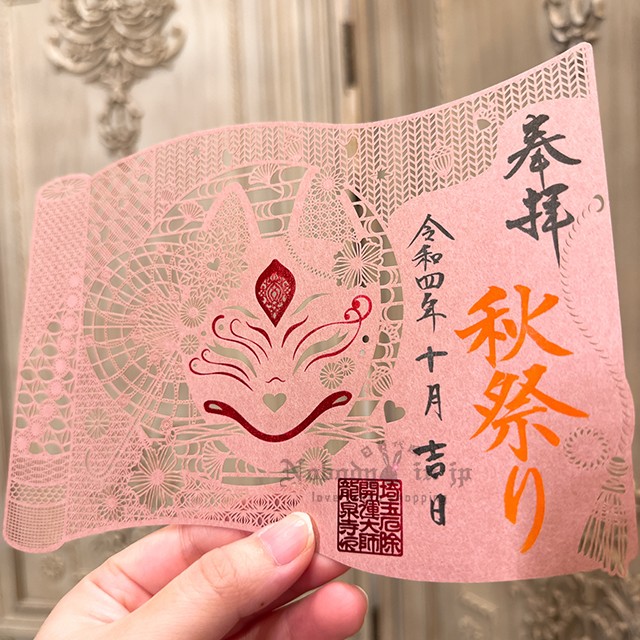 奉拝
秋祭り
令和四年十月吉日
埼玉厄除
開運大師
龍泉寺
Nobody